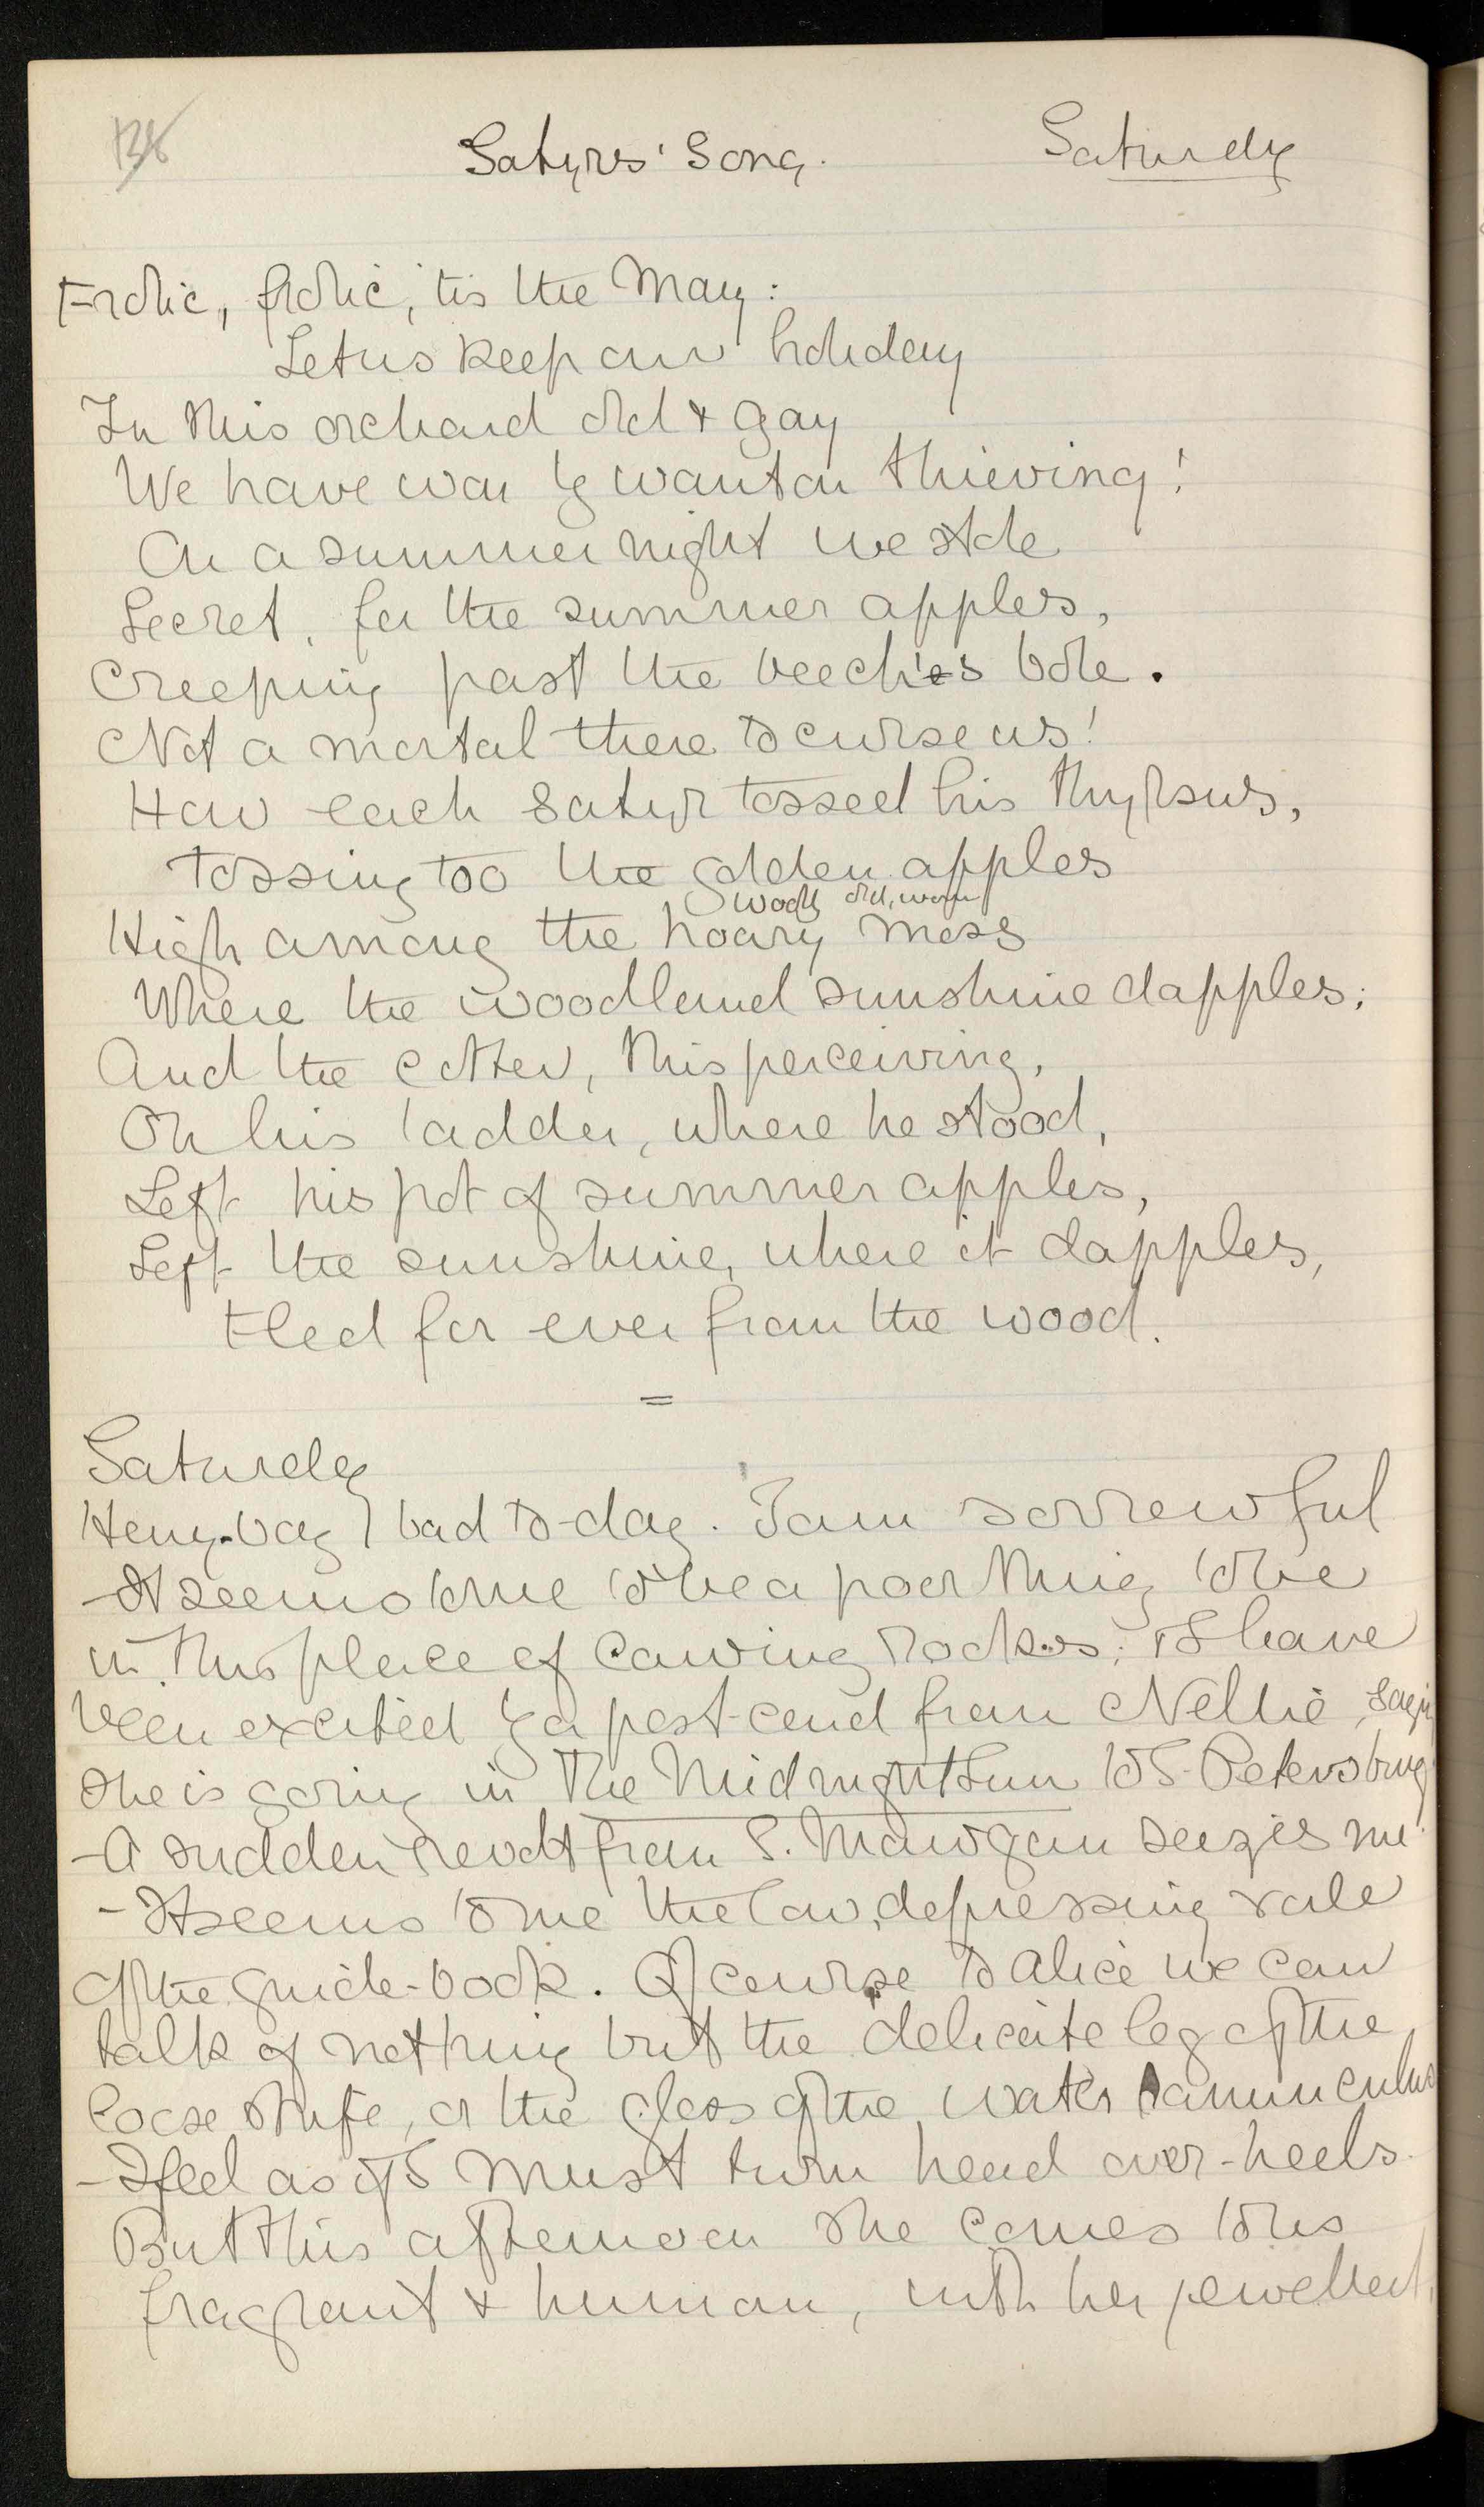 138
Satyrs' Song.
Saturday
Frolic, frolic, 'tis the May:
Let us keep our holiday
In this orchard old & gay
We have won by wanton thieving!
On a summer night we stole
Secret, for the summer apples,
Creeping past the beech's bole.
Not a mortal there to curse us!
How each Satyr tossed his thyrsus,
Tossing too the golden apples
woolly old, worn
High among the hoary moss
Where the woodland sunshine dapples;
And the cotter, this perceiving,
On his ladder, where he stood,
Left his pot of summer apples,
Left the sunshine, where it dapples,
Fled for ever from the wood.
=
Saturday
Henry-boy bad to-day. I am sorrowful
- It seems to me to be a poor thing to be
in this place of cawing rooks; & I have
been excited by a post-card from Nellie, saying
she is going in The Midnight Sun to S. Petersburg
- A sudden revolt from S. Mawgan seizes me.
- It seems to me the low, depressing vale
of the guide-book. Of course to Alice we can
talk of nothing but the delicate leg of the
loose strife, or the gloss of the water ranunculus
- I feel as if I must turn head over-heels.
But this afternoon she comes to us
fragrant & human, with her jewelled,